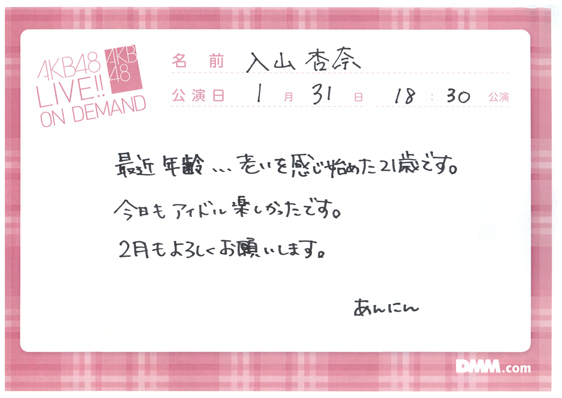 AKB48
LIVE!!
ON DEMAND
AKB
48
名前 入山杏奈
公演日 1月31日 18:30公演
最近年齢、、、老いを感じ始めた21歳です。
今日もアイドル楽しかったです。
2月もよろしくお願いします。
あんにん
DMM.com